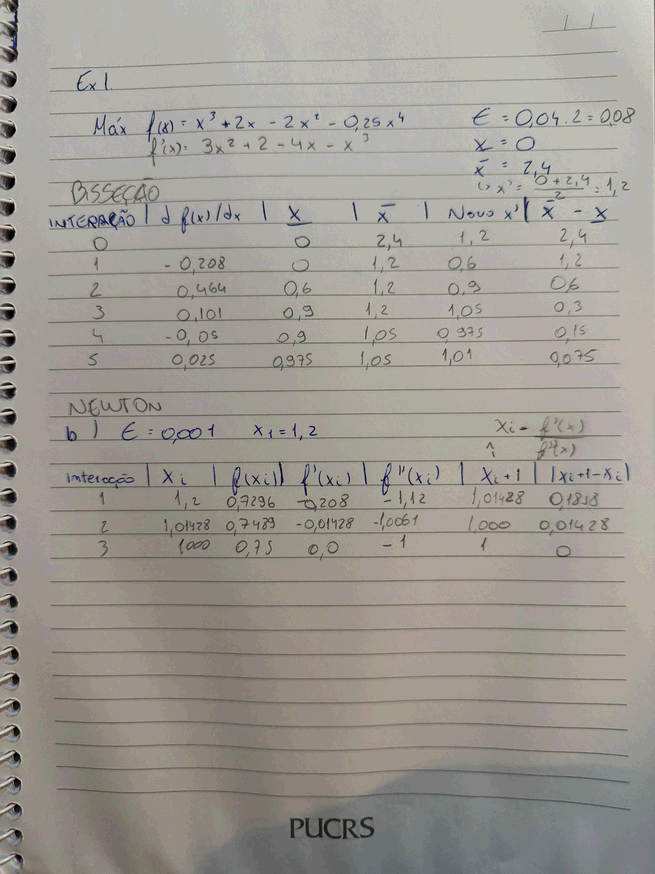 Ex 1.
Máx f(x) = x³ + 2x - 2x² - 0,25x⁴ ϵ = 0,04 . 2 = 0,08
f'(x) = 3x² + 2 - 4x - x³ x̲ = 0
x̄ = 2,4
↳ x' = (0 + 2,4)/2 = 1,2
BISSEÇÃO
INTERAÇÃO | d f(x)/dx | x̲ | x̄ | Novo x' | x̄ - x̲
0 0 2,4 1,2 2,4
1 - 0,208 0 1,2 0,6 1,2
2 0,464 0,6 1,2 0,9 0,6
3 0,101 0,9 1,2 1,05 0,3
4 - 0,05 0,9 1,05 0,975 0,15
5 0,025 0,975 1,05 1,01 0,075
NEWTON
b) ϵ = 0,001 x₁ = 1,2 xᵢ - f'(x)/f''(x)
Interação | xᵢ | f(xᵢ) | f'(xᵢ) | f''(xᵢ) | xᵢ+1 | |xᵢ+1 - xᵢ|
1 1,2 0,7296 -0,208 - 1,12 1,01428 0,1858
2 1,01428 0,7489 -0,01428 -1,0061 1,000 0,01428
3 1000 0,75 0,0 - 1 1 0
PUCRS